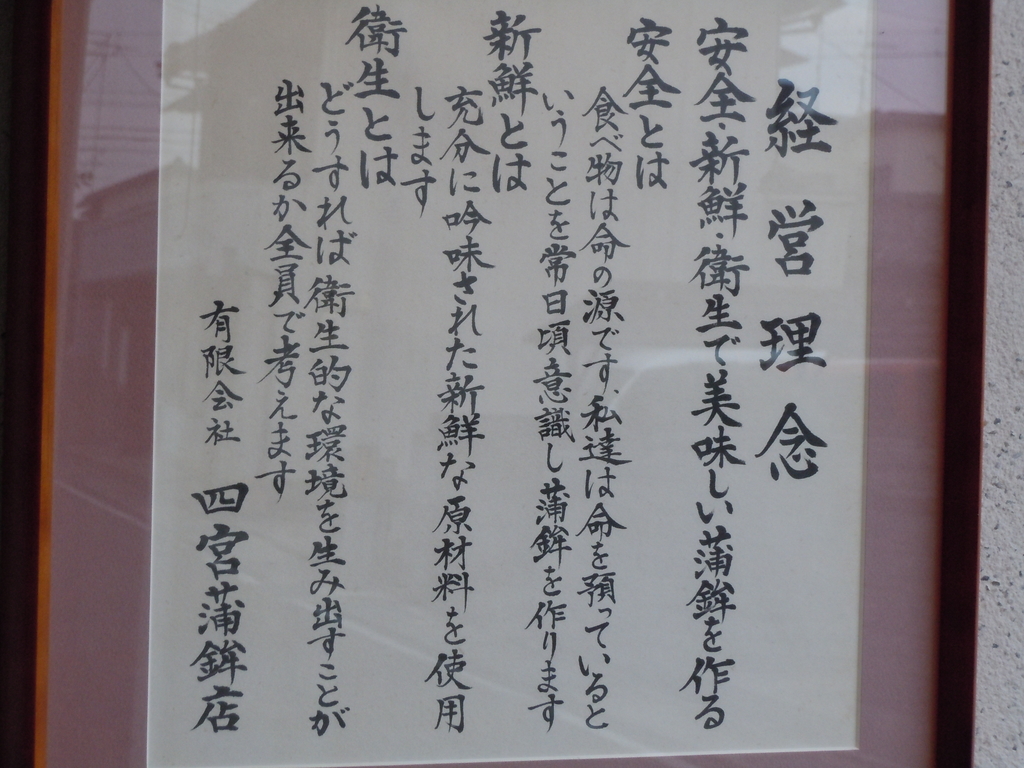 経営理念
安全・新鮮・衛生で美味しい蒲鉾を作る
安全とは
食べ物は命の源です、私達は命を預っていると
いうことを常日頃意識し蒲鉾を作ります
新鮮とは
充分に吟味された新鮮な原材料を使用
します
衛生とは
どうすれば衛生的な環境を生み出すことが
出来るか全員で考えます
有限会社 四宮蒲鉾店